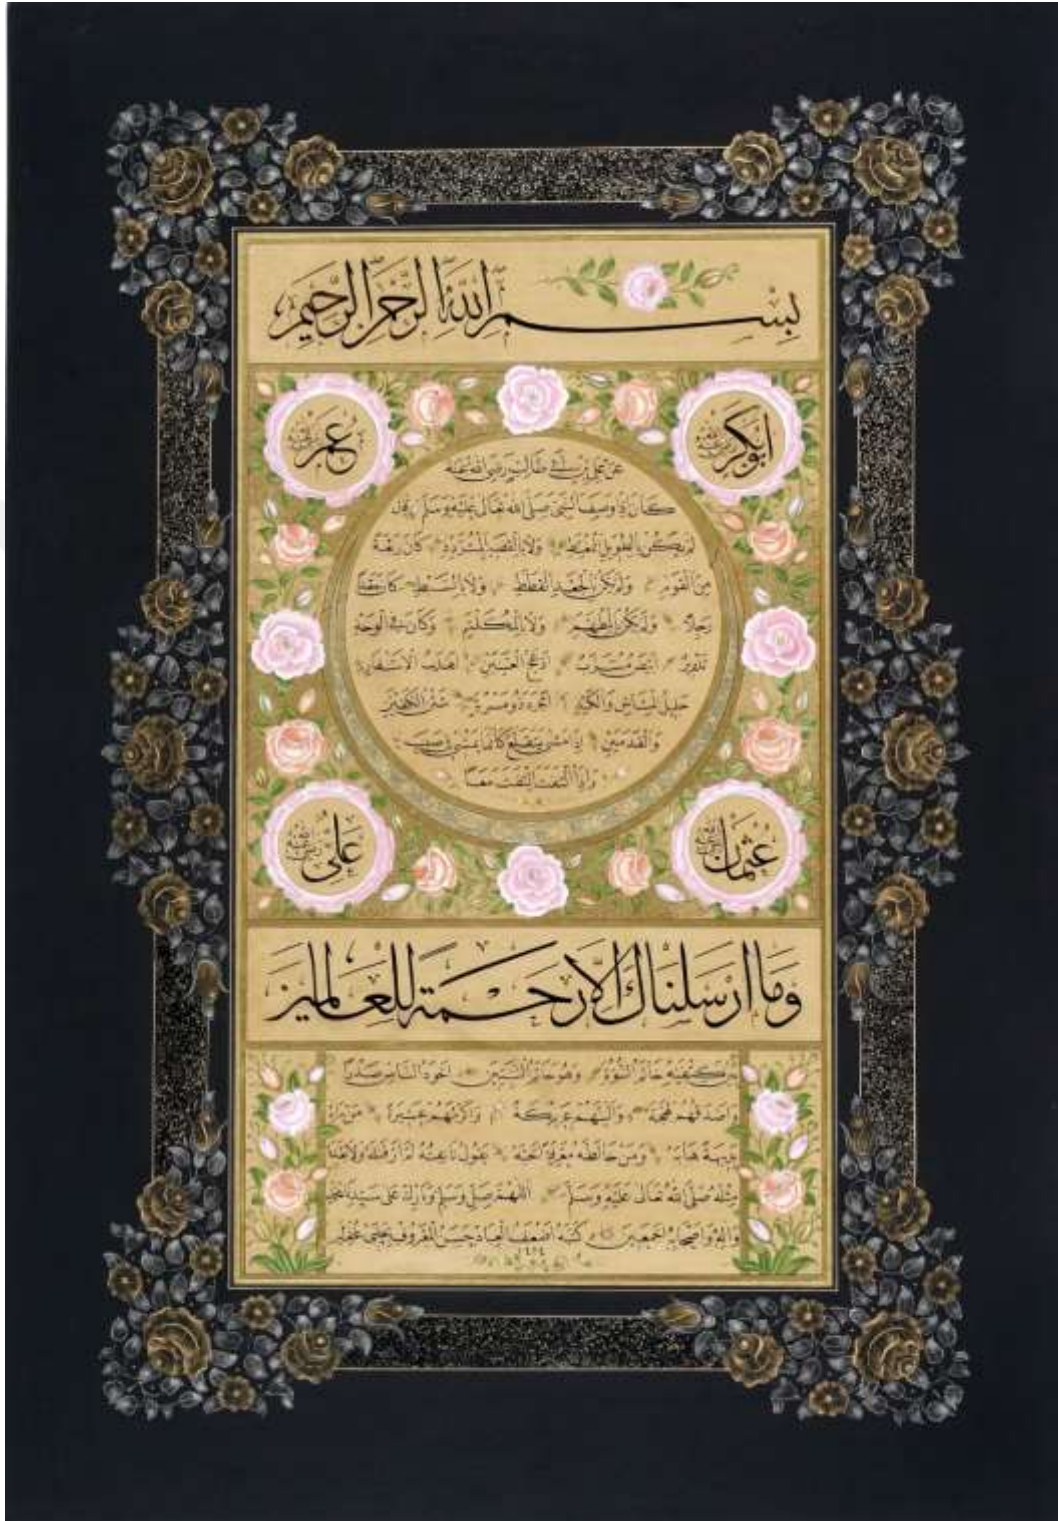 بسم الله الرحمن الرحيم
ابوبكر رضي الله عنه
عمر رضي الله عنه
عن علي بن ابي طالب رضي الله عنه
كان اذا وصف النبي صلى الله تعالى عليه وسلم يقول
لم يكن بالطويل الممغط ولا بالقصير المتردد كان ربعة
من القوم ولم يكن بالجعد القطط ولا بالسبط كان جعدا
رجلا ولم يكن بالمطهم ولا بالمكلثم وكان في الوجه
تدوير ابيض مشرب ادعج العينين اهدب الاشفار
جليل المشاش والكتد اجرد ذو مسربة شثن الكفين
والقدمين اذا مشى يتقلع كأنما يمشي في صبب
واذا التفت التفت معا
عثمان رضي الله عنه
علي رضي الله عنه
وما ارسلناك الا رحمة للعالمين
بين كتفيه خاتم النبوة وهو خاتم النبيين اجود الناس صدرا
واصدقهم لهجة والينهم عريكة واكرمهم عشيرة من رآه
بديهة هابه ومن خالطه معرفة احبه يقول ناعته لم ار قبله ولا بعده
مثله صلى الله تعالى عليه وسلم اللهم صل وسلم وبارك على سيدنا محمد
واله واصحابه اجمعين كتبه اضعف العباد حسن المعروف بچلبي غفر